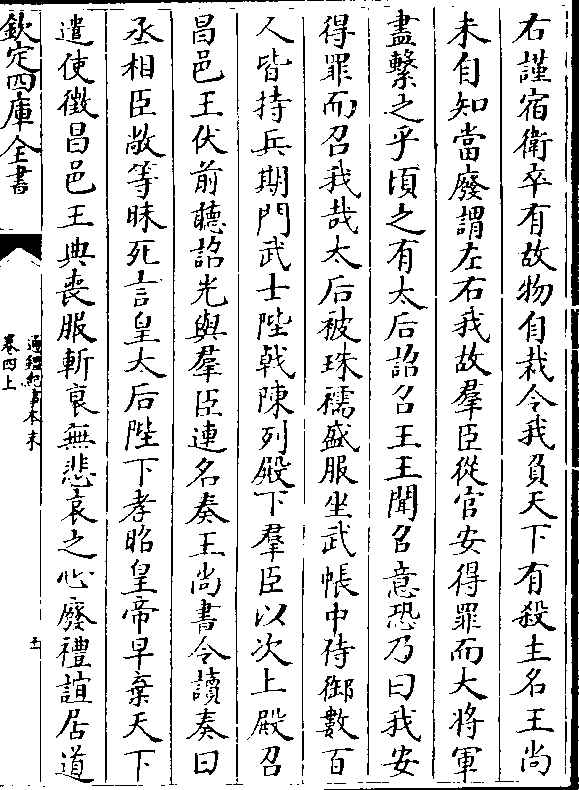 右謹宿衛卒有故物自裁令我負天下有殺主名王尚
未自知當廢謂左右我故羣臣從官安得罪而大將軍
盡繫之乎頃之有太后詔召王王聞召意恐乃曰我安
得罪而召我哉太后被珠襦盛服坐武帳中侍御數百
人皆持兵期門武士陛戟陳列殿下羣臣以次上殿召
昌邑王伏前聽詔光與羣臣連名奏王尚書令讀奏曰
丞相臣敞等昧死言皇太后陛下孝昭皇帝早棄天下
遣使徵昌邑王典喪服斬哀無悲哀之心廢禮誼居道
欽定四庫全書
通鑑紀事本末
卷四上
五